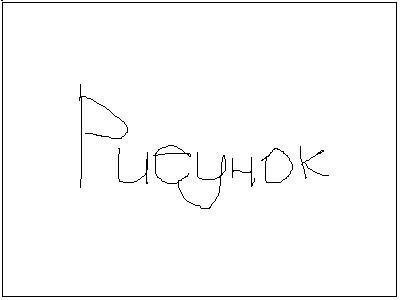 Рисунок